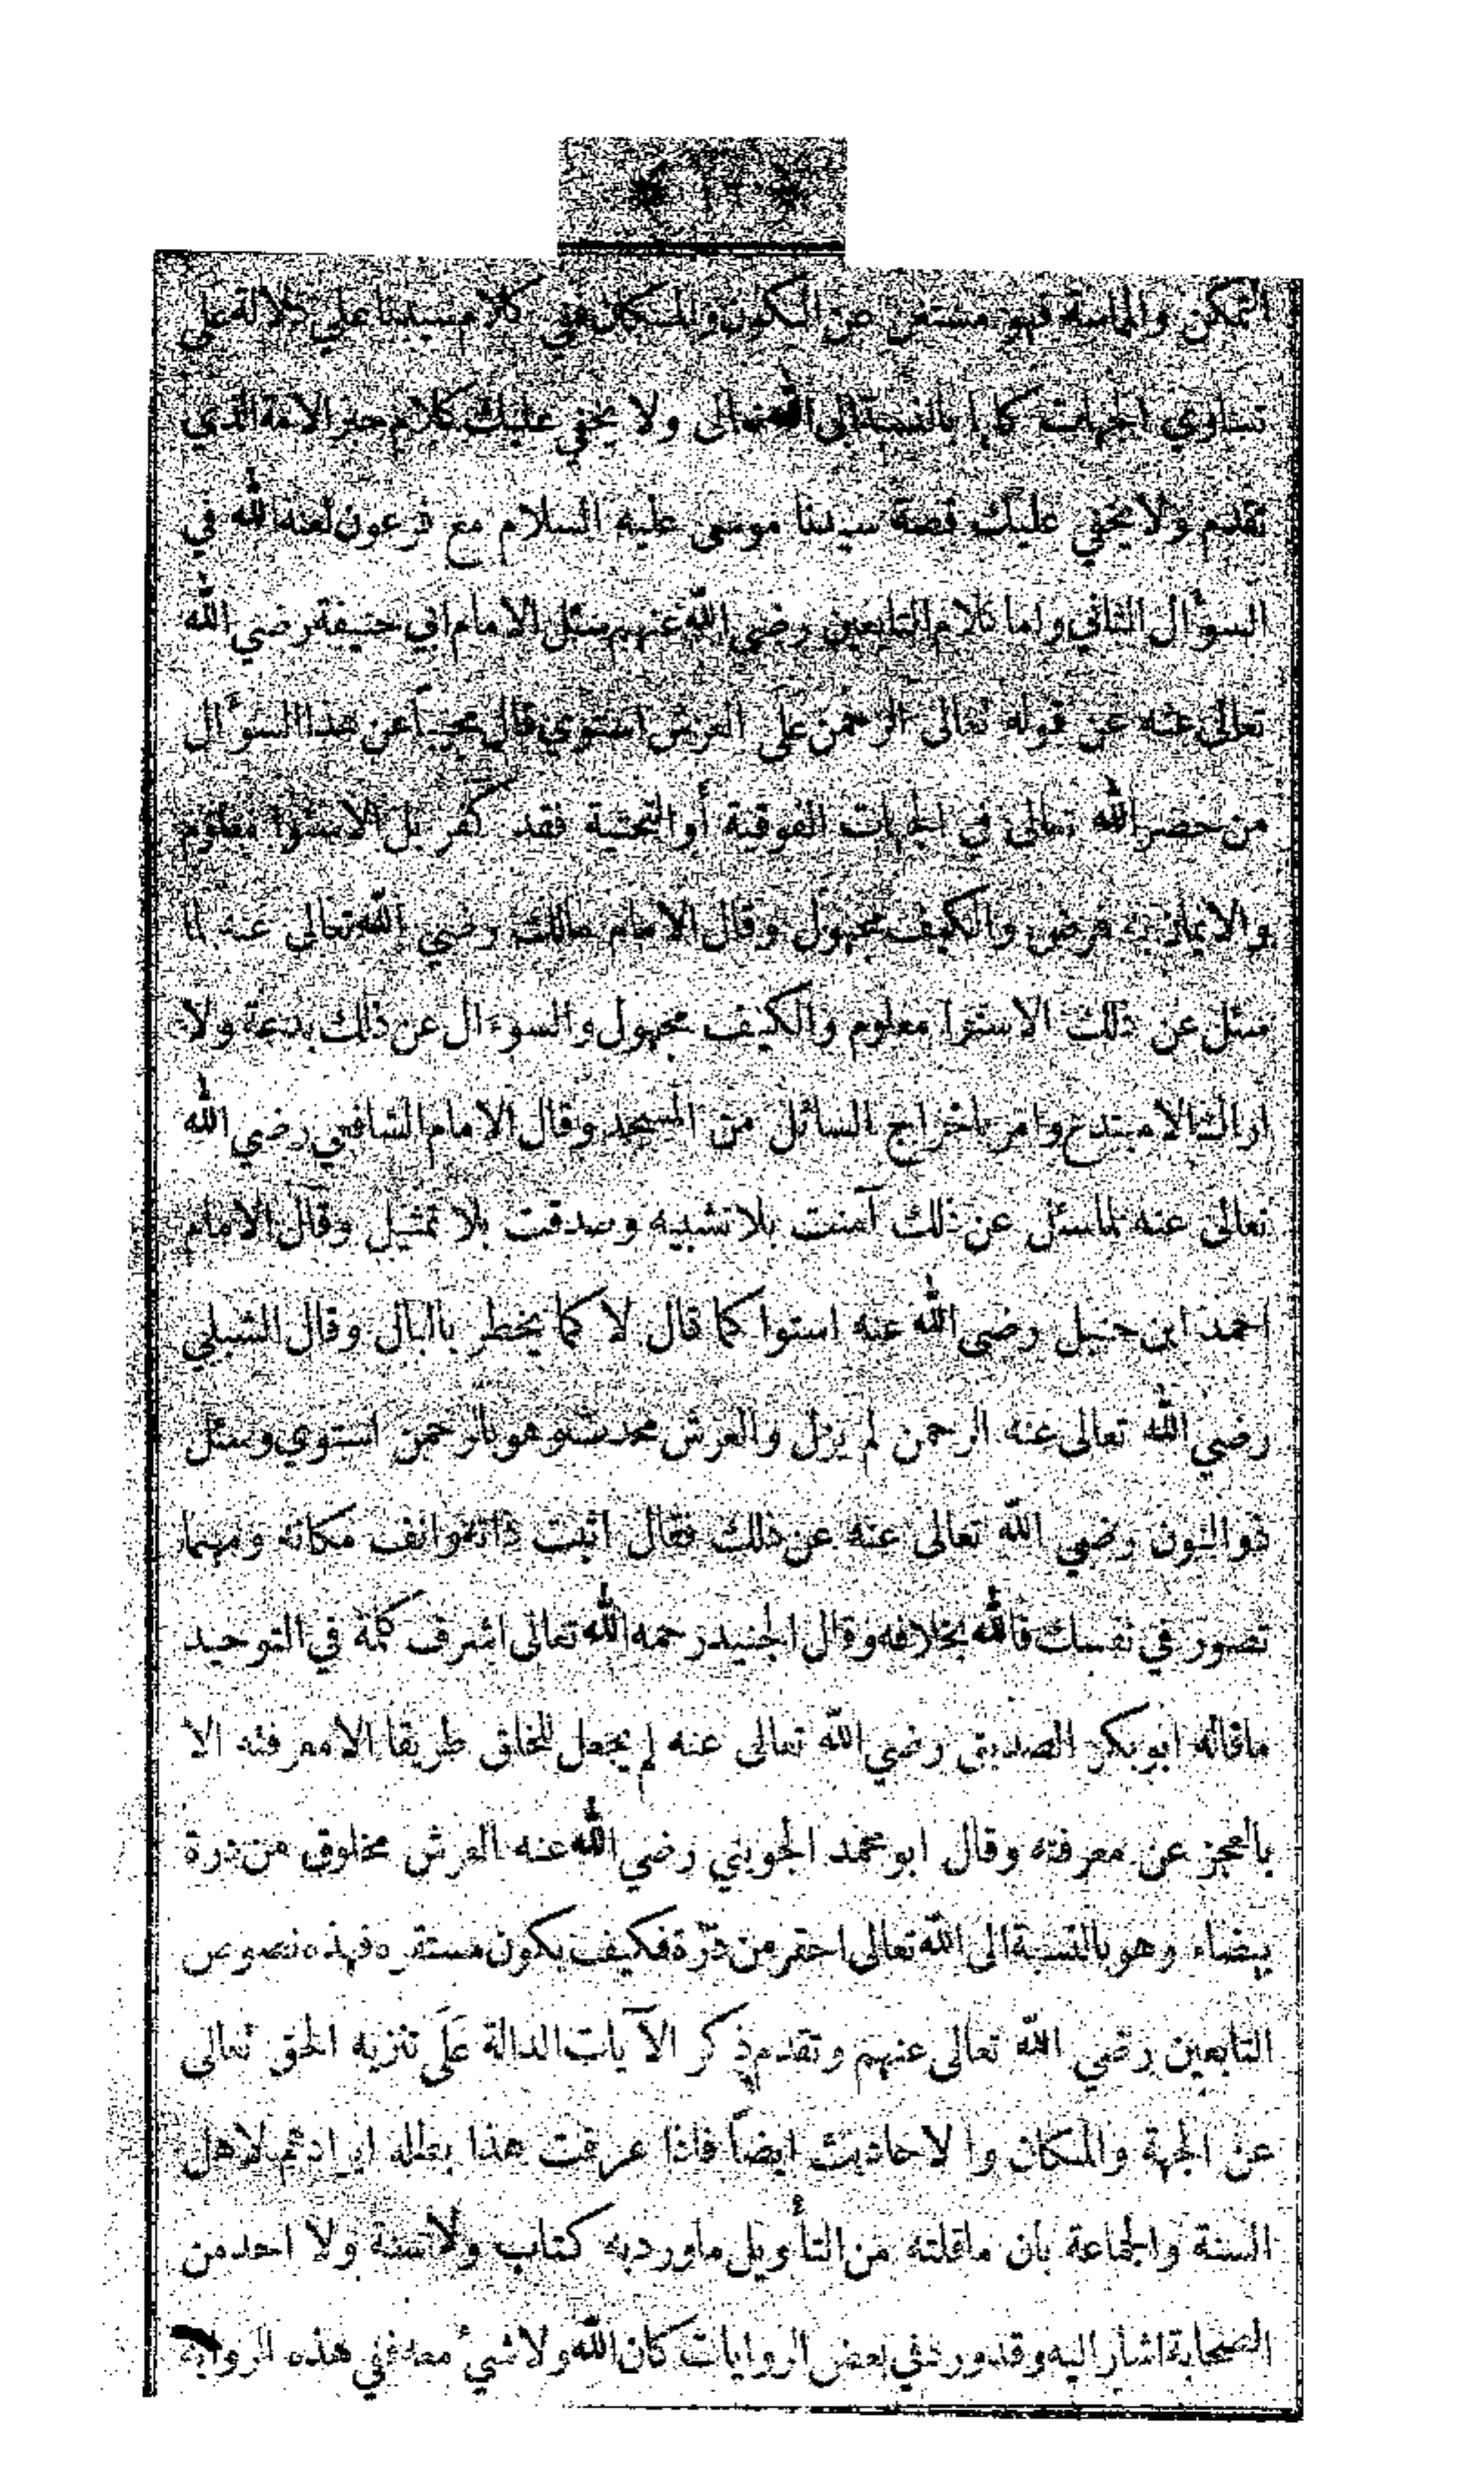 التمكن والمماسة فهو مستغن عن الكون والمكان ففي كلام سيدنا علي دلالة على
تساوي الجهات كلها بالنسبة الى الله تعالى ولا يخفى عليك كلام حبر الامة الذي
تقدم ولا يخفي عليك قصة سيدنا موسى عليه السلام مع فرعون لعنه الله في
السوأل الثاني واما كلام التابعين رضي الله عنهم سئل الامام ابي حنيفة رضي الله
تعالى عنه عن قوله تعالى الرحمن على العرش استوي قال مجيباً عن هذا السوأل
من حصر الله تعالى في الجهات الفوقية أو التحتية فقد كفر بل الاستوا معلوم
والايمان به فرض والكيف مجهول وقال الامام مالك رضي الله تعالى عنه لما
سئل عن ذلك الاستوا معلوم والكيف مجهول والسوءال عن ذلك بدعة ولا
اراك الا مبتدع وامر باخراج السائل من المسجد وقال الامام الشافعي رضي الله
تعالى عنه لما سئل عن ذلك آمنت بلا تشبيه وصدقت بلا تمثيل وقال الامام
احمد ابن حنبل رضي الله عنه استوا كما قال لا كما يخطر باالبال وقال الشبلي
رضي الله تعالى عنه الرحمن لم يزل والعرش محدث وهو بالرحمن استوي وسئل
ذو النون رضي الله تعالى عنه عن ذلك فقال اثبت ذاته وانف مكانه ومهما
تصور في نفسك فالله بخلافه وقال الجنيد رحمه الله تعالى اشرف كلمة في التوحيد
ماقاله ابو بكر الصديق رضي الله تعالى عنه لم يجعل للخلق طريقا الا معرفته الا
بالعجز عن معرفته وقال ابو محمد الجويني رضي الله عنه العرش مخلوق من درة
بيضاء وهو بالنسبة الى الله تعالى احقر من ذرّة فكيف يكون مستقره فهذه نصوص
التابعين رضي الله تعالى عنهم وتقدم ذكر الآيات الدالة عَلَى تنزيه الحق تعالى
عن الجهة والمكان والاحاديث ايضاً فاذا عرفت هذا بطل ايرادهم لاهل
السنة والجماعة بان ماقلته من التأويل ماورد به كتاب ولا سنة ولا احد من
الصحابة اشار اليه وقد ورد في بعض الروايات كان الله ولا شيء معه في هذه الرواية